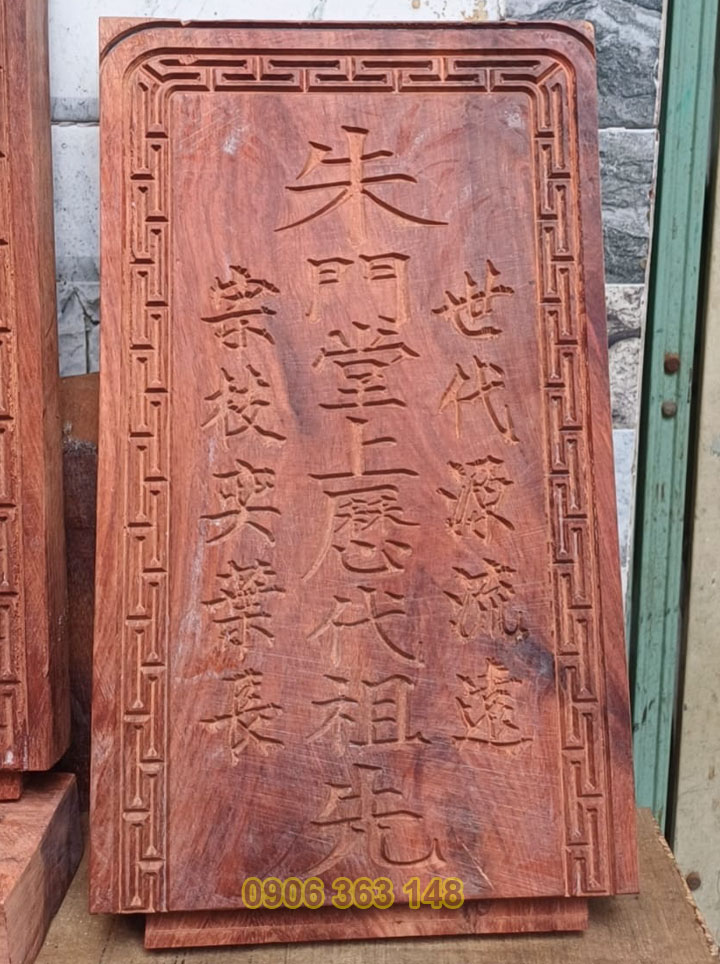 世代源流遠
朱門堂上歷代祖先
宗枝奕葉長
0906 363 148